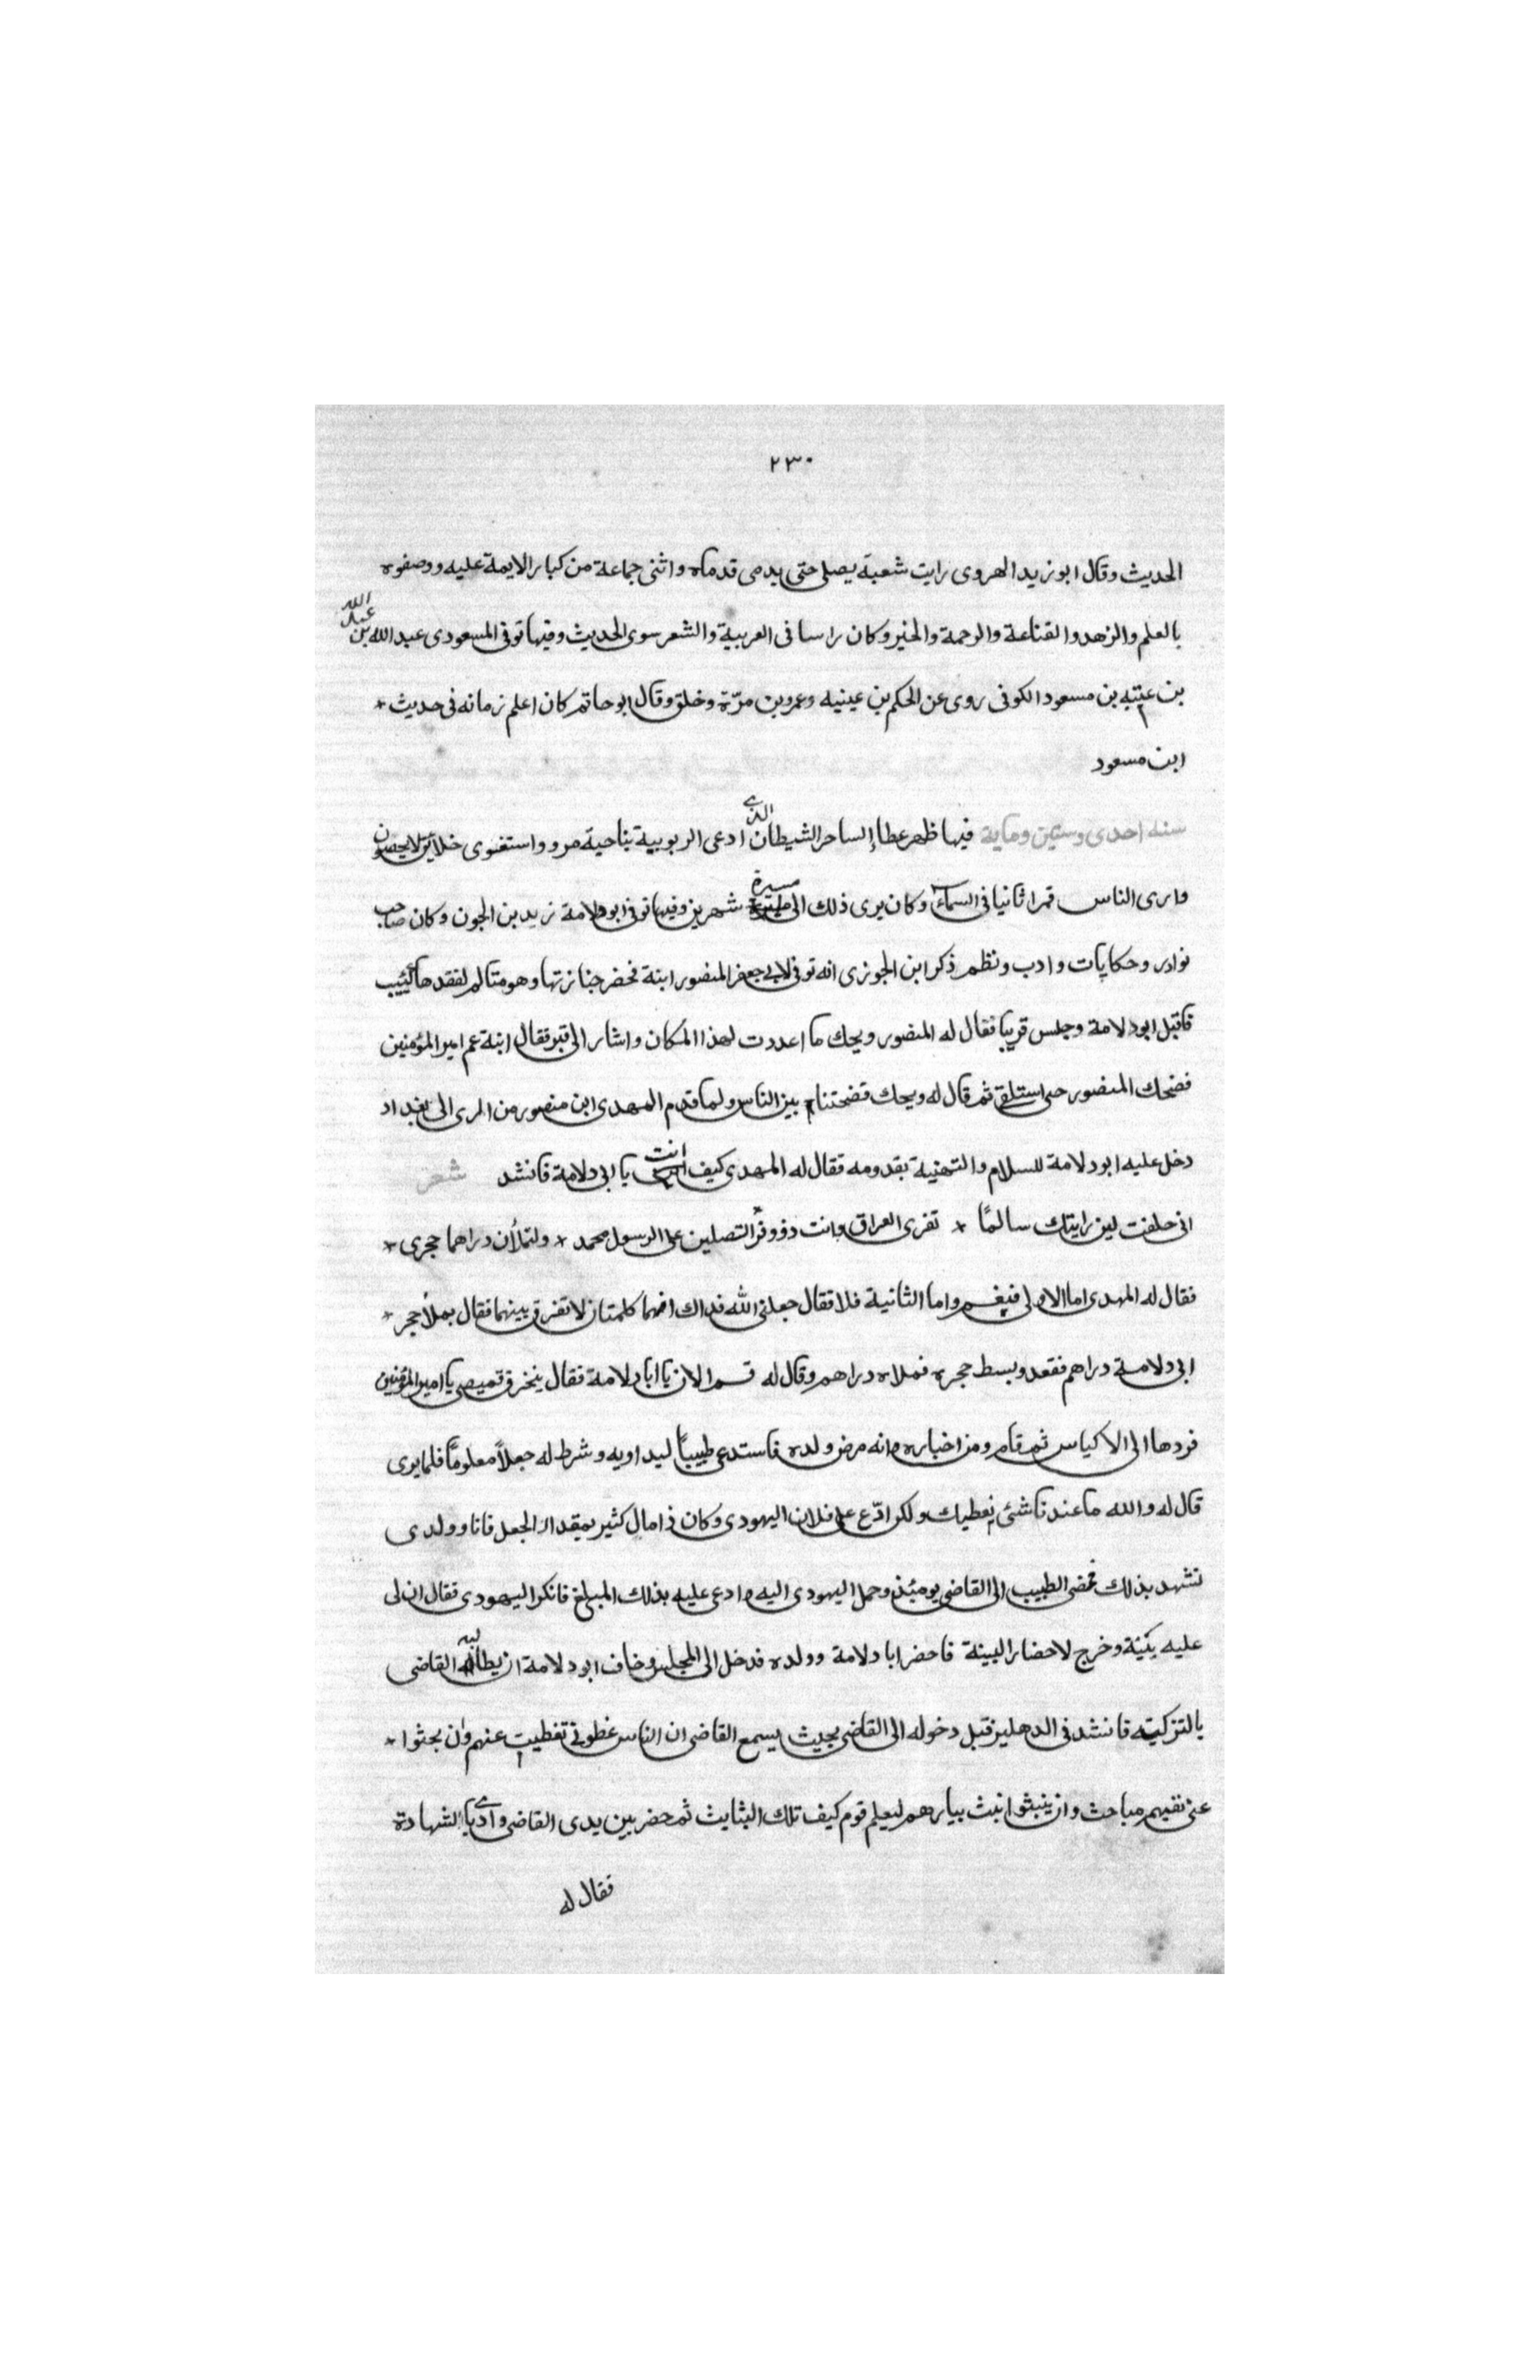 ٢٣٠
الحديث وقال ابو زيد الهروى رايت شعبة يصلى حتى يدمى قدماه واثنى جماعة من كبار الايمة عليه ووصفوه
بالعلم والزهد والقناعة والرحمة والخير وكان راسا فى العربية والشعر سوى الحديث وفيها توفى المسعودى عبد الله بن عبد الله
بن عتبه بن مسعود الكوفى روى عن الحكم بن عينيه وعمرو بن مرّة وخلق وقال ابو حاتم كان اعلم زمانه فى حديث *
ابن مسعود
سنه احدى وستين وماية فيها ظهر عطا الساحر الشيطان الذى ادعى الربوبية بناحية مرو واستغوى خلايق لايحصون
وارى الناس قمرا ثانيا فى السماء وكان يرى ذلك الى مسيرة شهرين وفيها توفى ابو دلامة زيد بن الجون وكان صاحب
نوادر وحكايات وادب ونظم ذكر ابن الجوزى انه توفى لابى جعفر المنصور ابنة فحضر جنازتها وهو متالم لفقدها كئيب
فاقبل ابو دلامة وجلس قريبا فقال له المنصور ويحك ما اعددت لهذا المكان واشار الى قبر فقال ابنة عم امير المؤمنين
فضحك المنصور حتى استلقى ثم قال له ويحك فضحتنا بين الناس ولما قدم المهدى ابن منصور من الرى الى بغداد
دخل عليه ابو دلامة للسلام والتهنية بقدومه فقال له المهدى كيف انت يا ابى دلامة فانشد شعر
انى حلفت لين رايتك سالمًا * تفرى العراق وانت ذو وفر لتصلين على الرسول محمد * ولتملأن دراهما حجرى *
فقال له المهدى اما الاولى فنعم واما الثانية فلا فقال جعلنى الله فداك انهما كلمتان لا تفرق بينهما فقال بملأ حجر *
ابى دلامة دراهم فقعد وبسط حجره فملاه دراهم وقال له قم الان يا ابا دلامة فقال ينخرق قميصى يا امير المؤمنين
فردها الى الاكياس ثم قام ومن اخباره انه مرض ولده فاستدعى طبيبًا ليداويه وشرط له جعلاً معلومًا فلما برى
قال له والله ما عندنا شئ نعطيك ولكن ادّع على فلان اليهودى وكان ذا مال كثير بمقدار الجعل فانا وولدى
نشهد بذلك فمضى الطبيب الى القاضى يوميئذ وحمل اليهودى اليه وادعى عليه بذلك المبلغ فانكر اليهودى فقال ان لى
عليه بينة وخرج لاحضار البينة فاحضر ابا دلامة وولده فدخل الى المجلس وخاف ابو دلامة ان يطالبه القاضى
بالتزكيته فانشد فى الدهليز قبل دخوله الى القاضى بحيث يسمع القاضى ان الناس غطونى تغطيت عنهم وان بحثوا *
عنى نفيهم مباحث وان ينبثوا انبث بيارهم ليعلم قوم كيف تلك البثايث ثم حضر بين يدى القاضى واديا الشهادة
فقال له